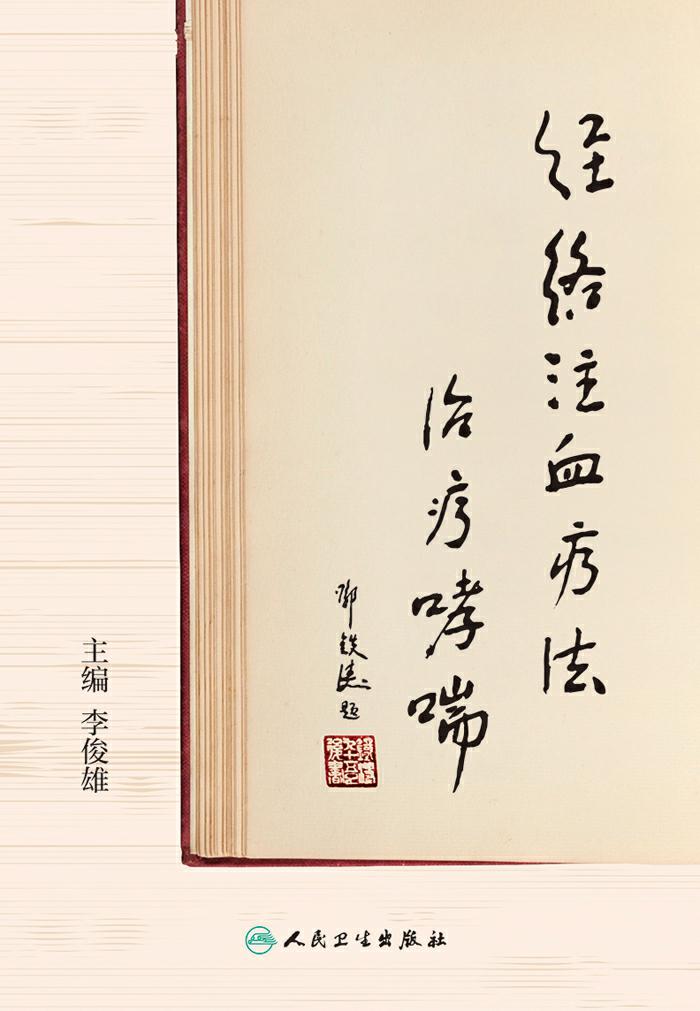 经络注血疗法
治疗哮喘
邓铁涛题
主编 李俊雄
人民卫生出版社